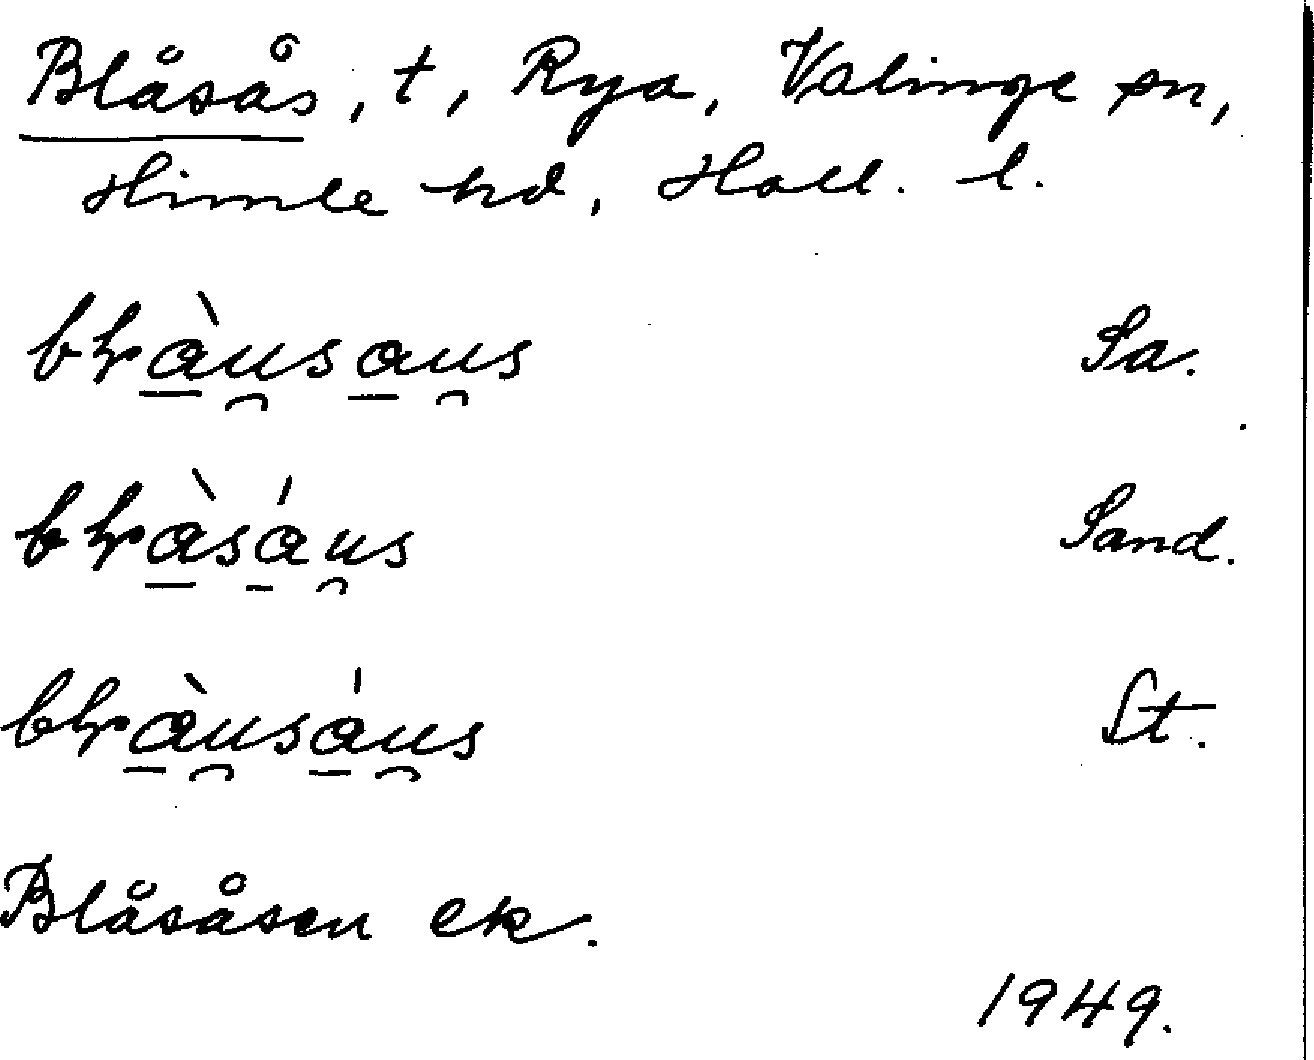 Blåsås, t, Rya, Valinge sn,
Himle hd, Hall. l.
bḷà̱u̯sa̱u̯s Sa.
bḷà̱sá̱u̯s Sand.
bḷà̱u̯sá̱u̯s St.
Blåsåsen ek.
1949.